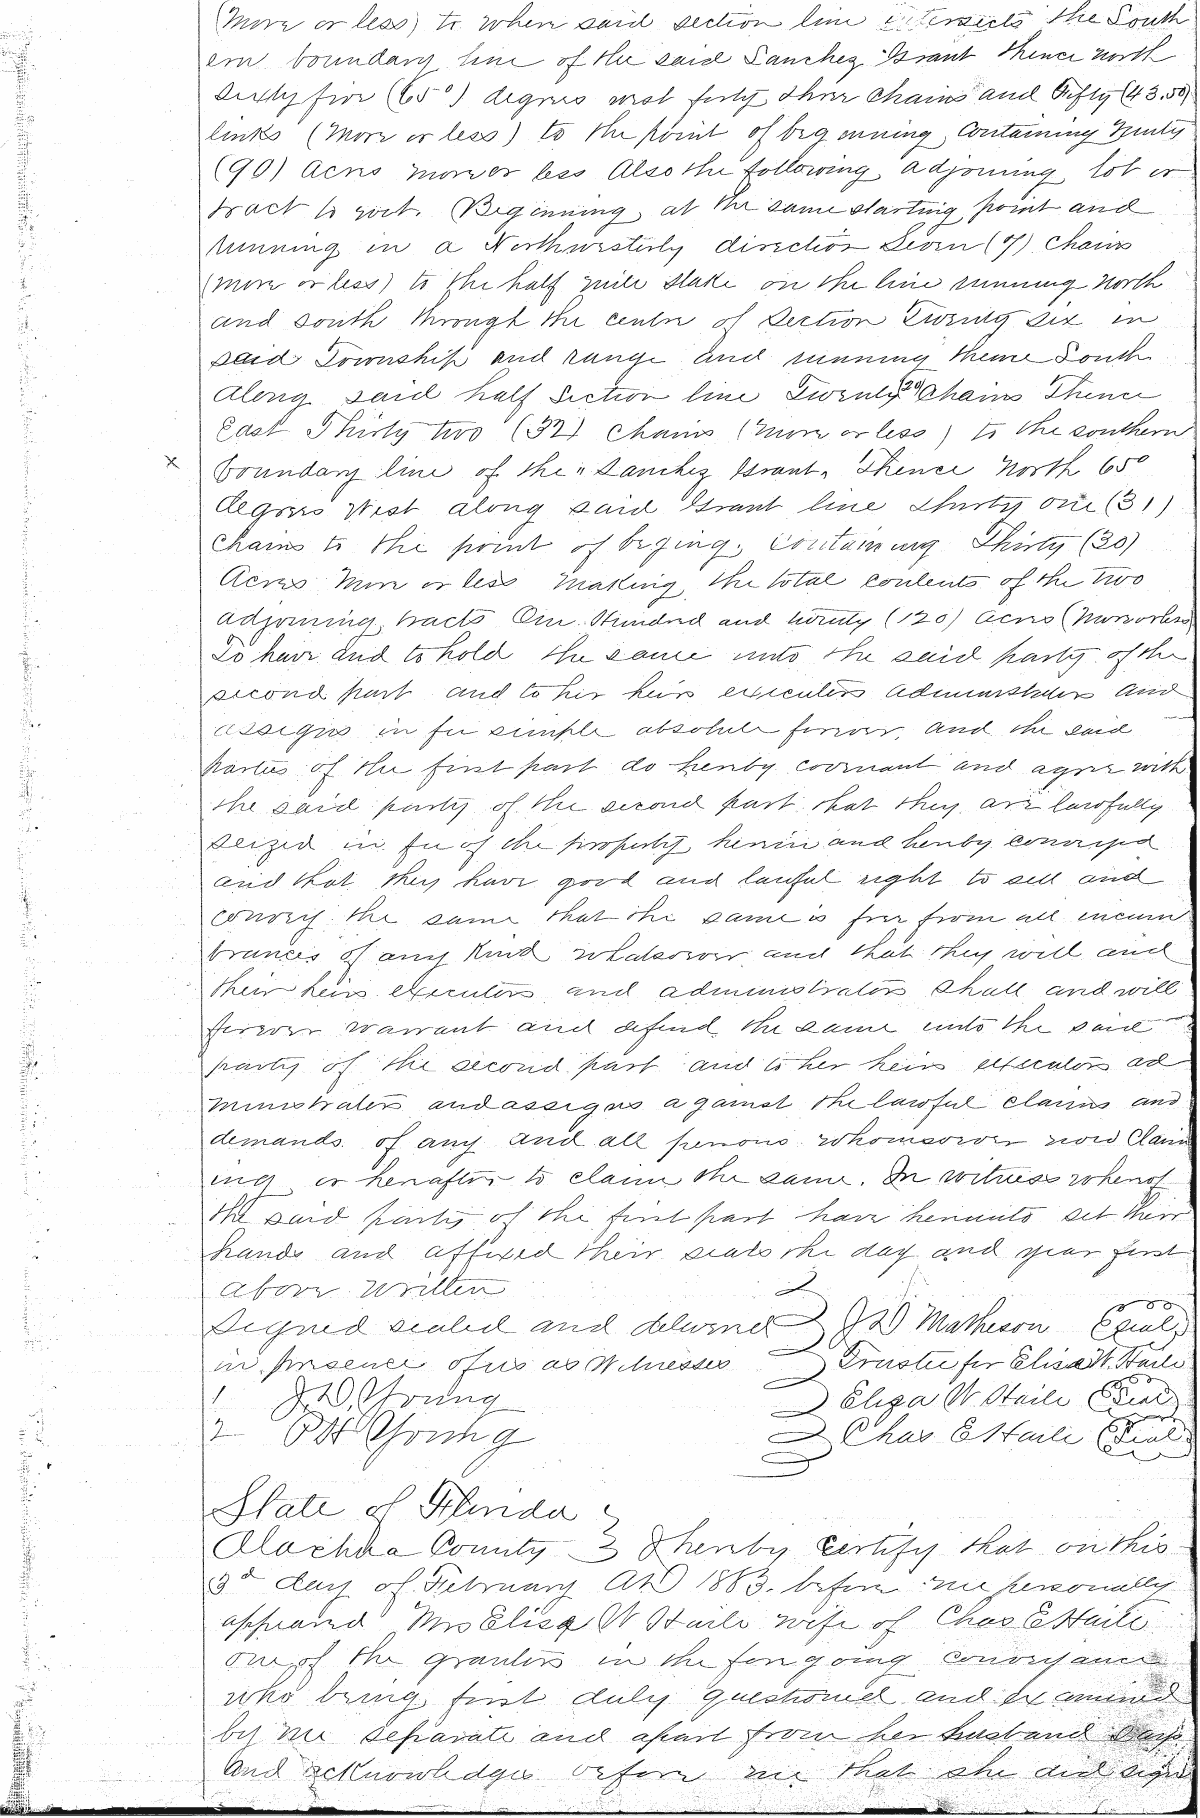 (More or less) to where said section line intersects the South
ern boundary line of the said Sanchez Grant thence north
Sixty five (65°) degrees west forty three chains and Fifty (43.50)
links (More or less) to the point of beginning, Containing Ninety
(90) Acres more or less Also the following, adjoining, lot or
tract to wit. Beginning, at the same starting point and
running in a Northwesterly direction Seven (7) chains
(more or less) to the half mile stake on the line running north
and south through the centre of section Twenty six in
said Township and range and running thence South
along said half Section line Twenty (20) Chains Thence
East Thirty two (32) chains (More or less) to the southern
x boundary line of the "Sanchez Grant" Thence North 65°
degrees West along said Grant line thirty one (31)
chains to the point of beging, containing Thirty (30)
Acres More or less Making, the total contents of the two
adjoining, tracts One Hundred and twenty (120) acres (More or less)
To have and to hold the same unto the said party of the
second part and to her heirs executers administraters and
assigns in fee simple absolute forever, and the said
parties of the first part do hereby covenant and agree with
the said party of the second part that they are lawfully
seized in fee of the property herein and hereby conveyed
and that they have good and lawful right to sell and
convey the same that the same is free from all incum
brances of any Kind whatsoever and that they will and
their heirs executors and administrators shall and will
forever warrant and defend the same unto the said
party of the second part and to her heirs executors ad
ministrators and assigns against the lawful claims and
demands of any and all persons whomsoever now Claim
ing or hereafter to claim the same. In witness whereof
the said parties of the first part have hereunto set their
hands and affixed their seals the day and year first
above written
Signed sealed and delivered J D Matheson (Seal)
in presence of us as Witnesses Trustee for Eliza W. Haile
1 J. D. Young Eliza W Haile (Seal)
2 P H Young Chas E Haile (Seal)
State of Florida
Alachua County I hereby certify that on this
3d day of February AD 1883. before me personally
appeared Mrs Eliza W Haile wife of Chas E Haile
one of the grantors in the foregoing conveyance
who being first duly questioned and examined
by me separate and apart from her husband says
And acknowledges before me that she did sign